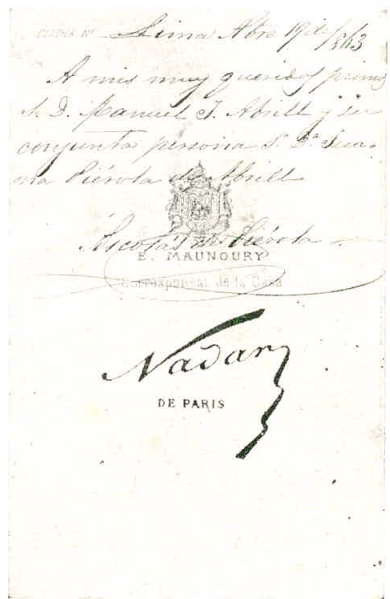 CLICHÉ Nº Lima Abre 19 de 1863
A mis muy queridos primos
S. D. Manuel J. Abrill y su
conjunta persona Sª Dª Jua
na Piérola de Abrill
Nicolás de Piérola
E. MAUNOURY
Corresponsal de la Casa
Nadar
DE PARIS